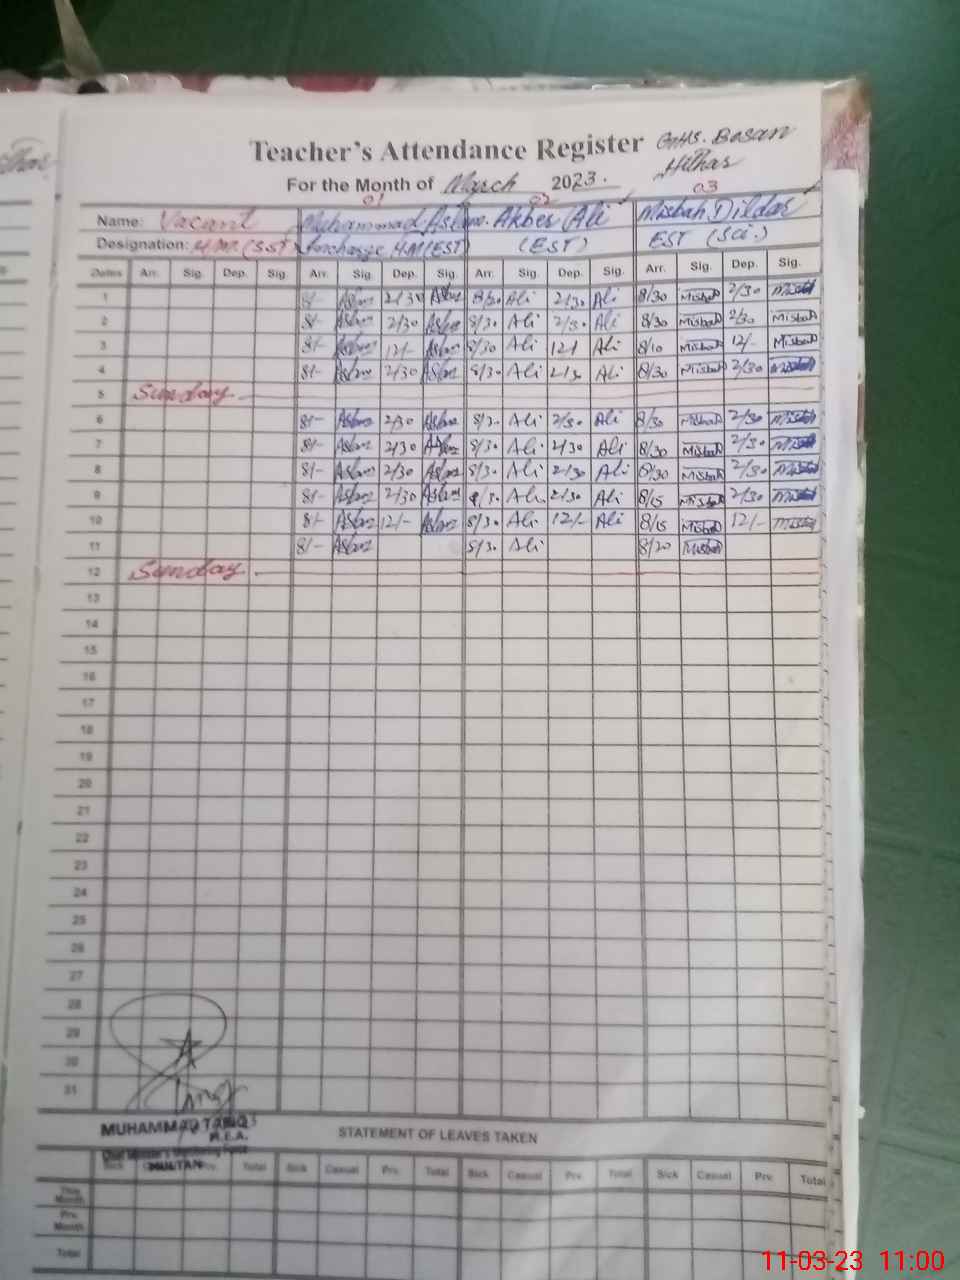 Teacher's Attendance Register GHS. Bosan
For the Month of March 2023. Hithar
01 02 03
Name: Vacant Muhammad Aslam. Akber Ali Misbah Dildar
Designation: H.M. (SST) Incharge H.M (EST) (EST) EST (Sci.)
Dates Arr. Sig. Dep. Sig. Arr. Sig. Dep. Sig. Arr. Sig. Dep. Sig. Arr. Sig. Dep. Sig.
1 8/- Aslam 2/30 Aslam 8/30 Ali 2/30 Ali 8/30 Misbah 2/30 Misbah
2 8/- Aslam 2/30 Aslam 8/30 Ali 2/30 Ali 8/30 Misbah 2/30 Misbah
3 8/- Aslam 12/- Aslam 8/30 Ali 12/ Ali 8/10 Misbah 12/- Misbah
4 8/- Aslam 2/30 Aslam 8/30 Ali 2/30 Ali 8/30 Misbah 2/30 Misbah
5 Sunday
6 8/- Aslam 2/30 Aslam 8/30 Ali 2/30 Ali 8/30 Misbah 2/30 Misbah
7 8/- Aslam 2/30 Aslam 8/30 Ali 2/30 Ali 8/30 Misbah 2/30 Misbah
8 8/- Aslam 2/30 Aslam 8/30 Ali 2/30 Ali 8/30 Misbah 2/30 Misbah
9 8/- Aslam 2/30 Aslam 8/30 Ali 2/30 Ali 8/15 Misbah 2/30 Misbah
10 8/- Aslam 12/- Aslam 8/30 Ali 12/- Ali 8/15 Misbah 12/- Misbah
11 8/- Aslam 8/30 Ali 8/20 Misbah
12 Sunday.
13
14
15
16
17
18
19
20
21
22
23
24
25
26
27
28
29
30
31
MUHAMMAD TARIQ
M.E.A.
STATEMENT OF LEAVES TAKEN
Chief Minister's Monitoring Force
MULTAN
Sick Prv. Total Sick Casual Prv. Total Sick Casual Prv. Total Sick Casual Prv. Total
This Month
Prv. Month
Total
11-03-23 11:00